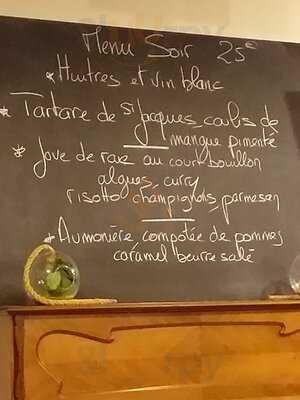 Menu Soir 25€
* Huîtres et vin blanc
* Tartare de St Jacques, coulis de
mangue pimenté
* Joue de raie au court bouillon
algues, curry
risotto champignons, parmesan
* Aumonière, compotée de pommes
caramel beurre salé